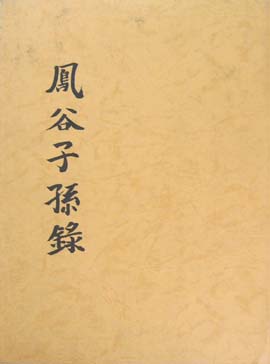 鳳谷子孫錄